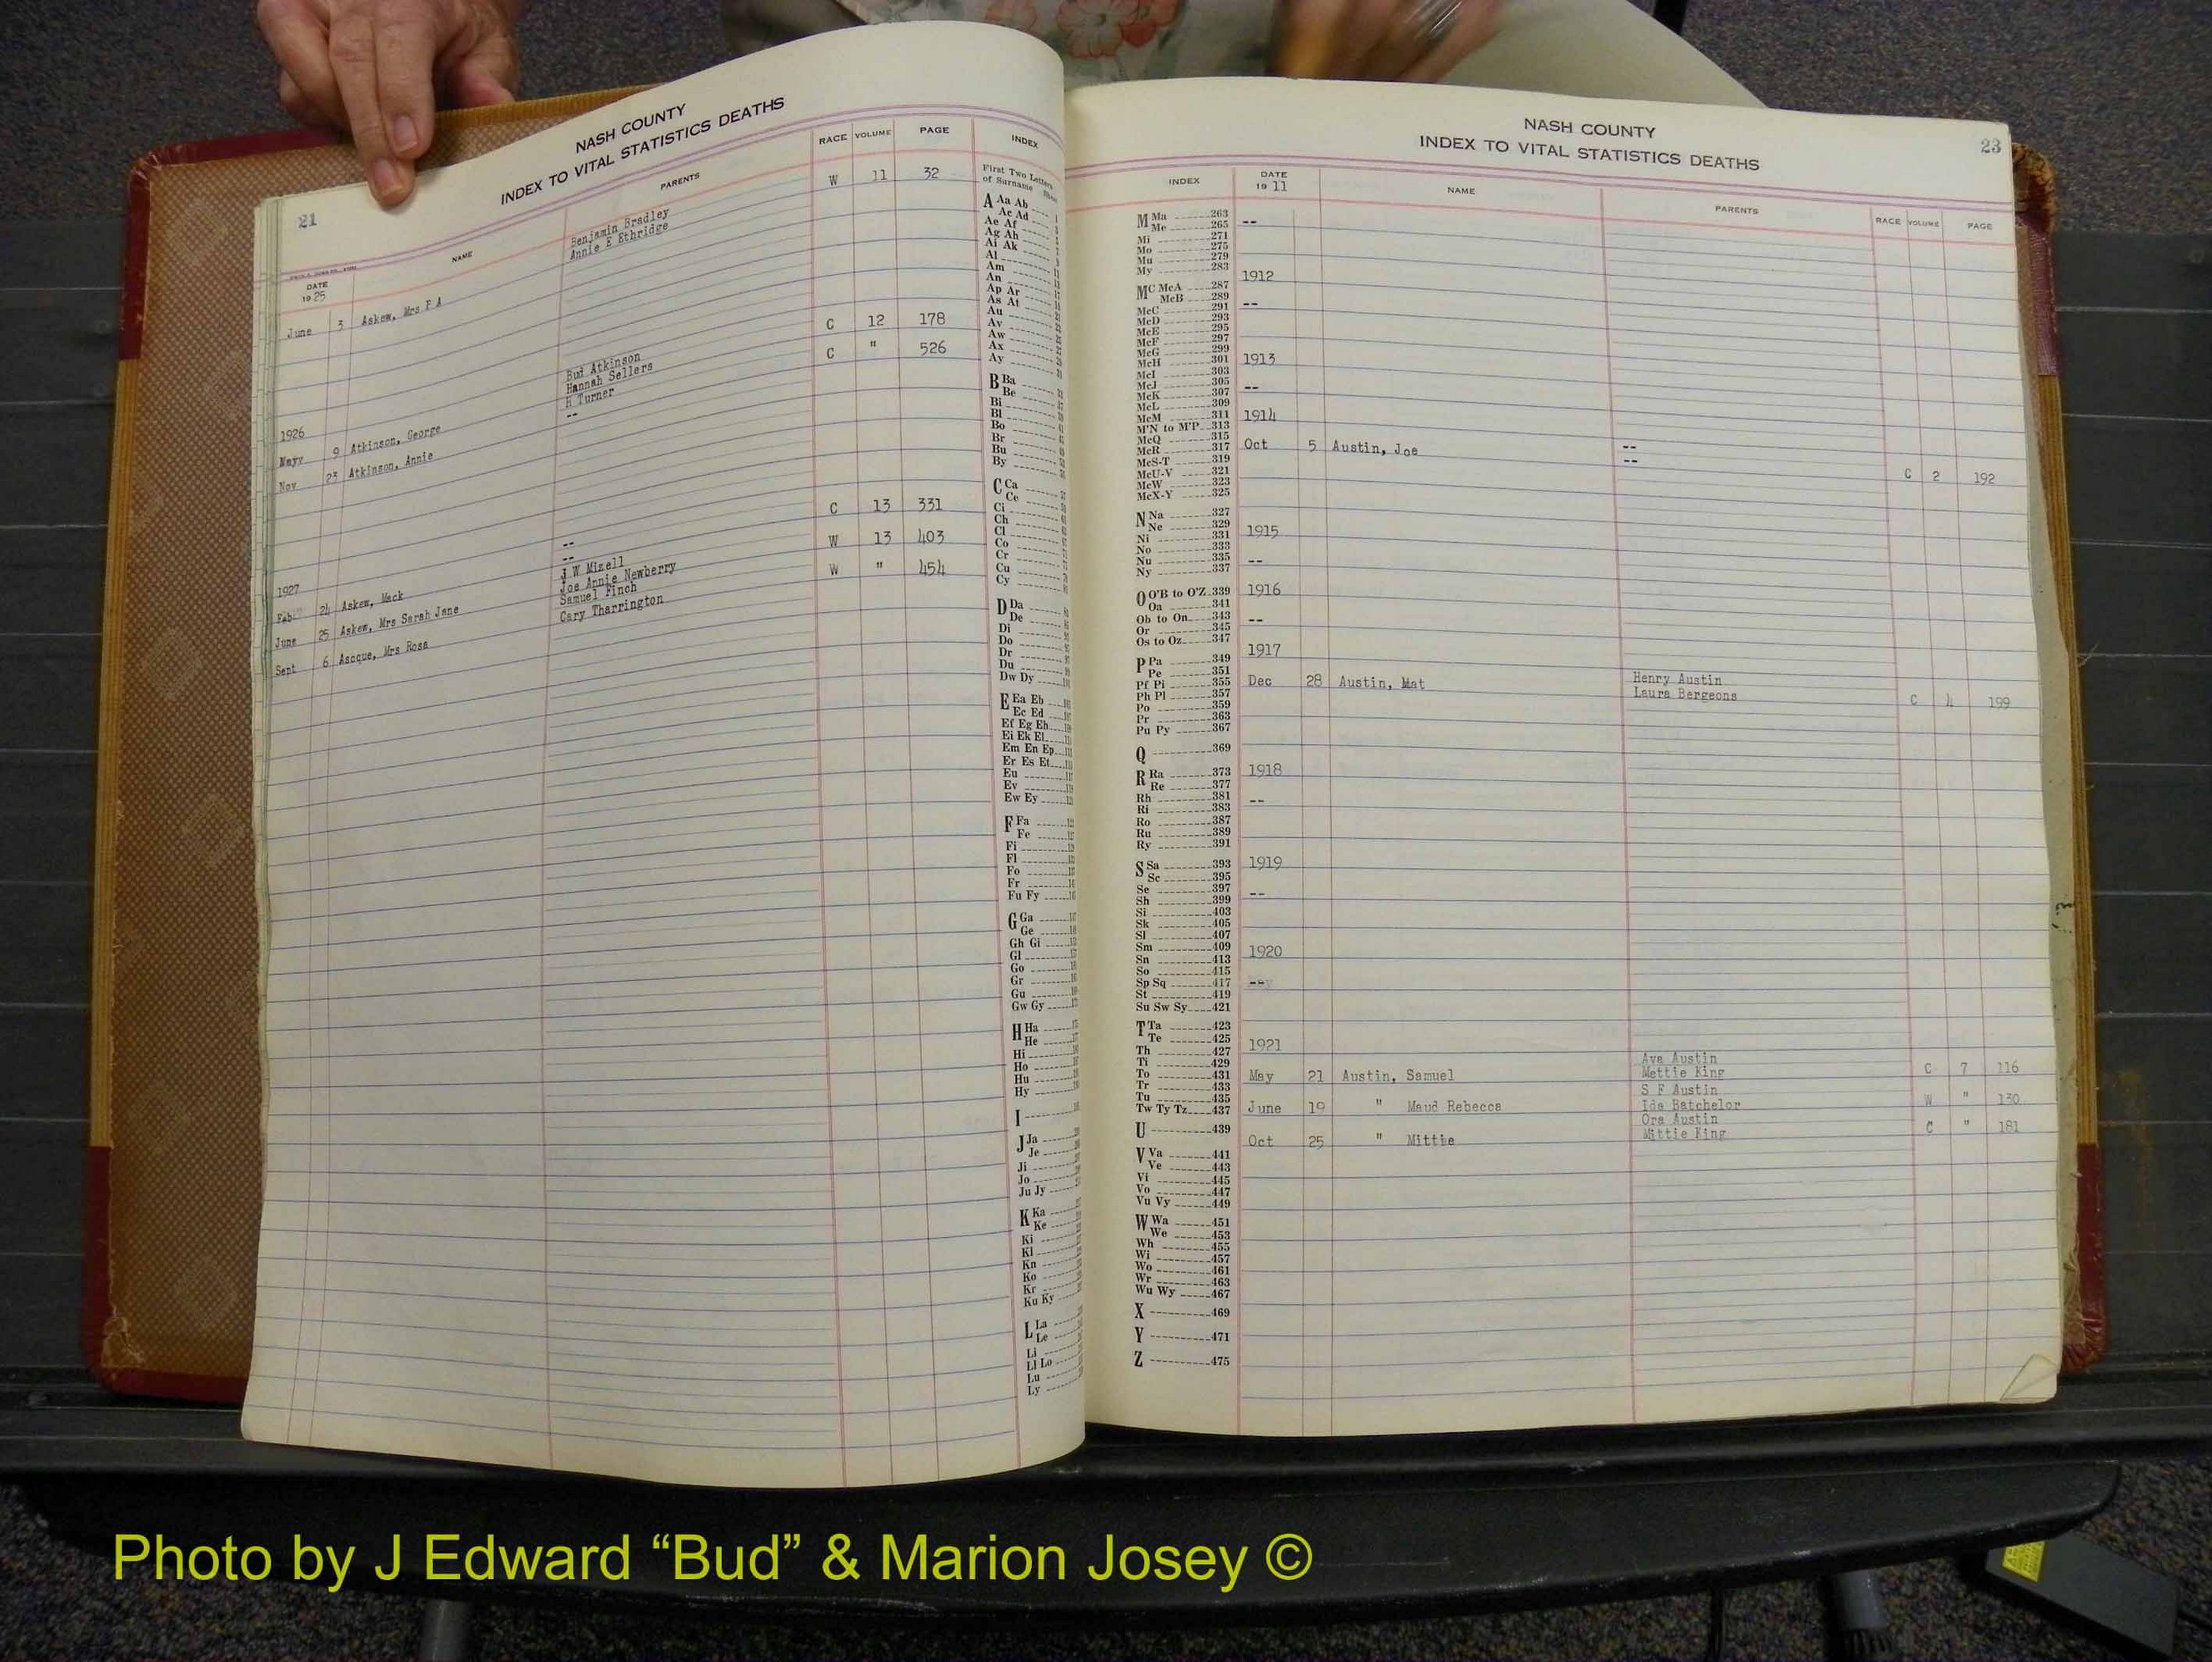 21
NASH COUNTY
INDEX TO VITAL STATISTICS DEATHS
DATE
19 25
NAME
PARENTS
RACE
VOLUME
PAGE
INDEX
First Two Letters
of Surname
June 3 Askew, Mrs P A Benjamin Bradley W 11 32
Annie E Ethridge
1926
May 9 Atkinson, George Bud Atkinson C 12 178
Hannah Sellers
Nov 23 Atkinson, Annie H Turner C " 526
--
1927
Feb 24 Askew, Mack -- C 13 331
--
June 25 Askew, Mrs Sarah Jane J W Mizell W 13 403
Joe Annie Newberry
Sept 6 Ascque, Mrs Rosa Samuel Finch W " 454
Cary Tharrington
A Aa Ab
Ac Ad
Ae Af
Ag Ah
Ai Ak
Al
Am
An
Ap Ar
As At
Au
Av
Aw
Ax
Ay
B Ba
Be
Bi
Bl
Bo
Br
Bu
By
C Ca
Ce
Ci
Ch
Cl
Co
Cr
Cu
Cy
D Da
De
Di
Do
Dr
Du
Dw Dy
E Ea Eb
Ec Ed
Ef Eg Eh
Ei Ek El
Em En Ep
Er Es Et
Eu
Ev
Ew Ey
F Fa
Fe
Fi
Fl
Fo
Fr
Fu Fy
G Ga
Ge
Gh Gi
Gl
Go
Gr
Gu
Gw Gy
H Ha
He
Hi
Ho
Hu
Hy
I
J Ja
Je
Ji
Jo
Ju Jy
K Ka
Ke
Ki
Kl
Kn
Ko
Kr
Ku Ky
L La
Le
Li
Ll Lo
Lu
Ly
NASH COUNTY
INDEX TO VITAL STATISTICS DEATHS
23
INDEX
DATE
19 11
NAME
PARENTS
RACE
VOLUME
PAGE
M Ma 263
Me 265
Mi 271
Mo 275
Mu 279
My 283
MC McA 287
McB 289
McC 291
McD 293
McE 295
McF 297
McG 299
McH 301
McI 303
McJ 305
McK 307
McL 309
McM 311
M'N to M'P 313
McQ 315
McR 317
McS-T 319
McU-V 321
McW 323
McX-Y 325
N Na 327
Ne 329
Ni 331
No 333
Nu 335
Ny 337
O O'B to O'Z 339
Oa 341
Ob to On 343
Or 345
Os to Oz 347
P Pa 349
Pe 351
Pf Pi 355
Ph Pl 357
Po 359
Pr 363
Pu Py 367
Q 369
R Ra 373
Re 377
Rh 381
Ri 383
Ro 387
Ru 389
Ry 391
S Sa 393
Sc 395
Se 397
Sh 399
Si 403
Sk 405
Sl 407
Sm 409
Sn 413
So 415
Sp Sq 417
St 419
Su Sw Sy 421
T Ta 423
Te 425
Th 427
Ti 429
To 431
Tr 433
Tu 435
Tw Ty Tz 437
U 439
V Va 441
Ve 443
Vi 445
Vo 447
Vu Vy 449
W Wa 451
We 453
Wh 455
Wi 457
Wo 461
Wr 463
Wu Wy 467
X 469
Y 471
Z 475
--
1912
--
1913
--
1914
Oct 5 Austin, Joe --
-- C 2 192
1915
--
1916
--
1917
Dec 28 Austin, Mat Henry Austin
Laura Bergeons C 4 199
1918
--
1919
--
1920
--
1921
Ava Austin
May 21 Austin, Samuel Mettie King C 7 116
S F Austin
June 19 " Maud Rebecca Ida Batchelor W " 130
Ora Austin
Oct 25 " Mittie Mittie King C " 181
Photo by J Edward “Bud” & Marion Josey ©